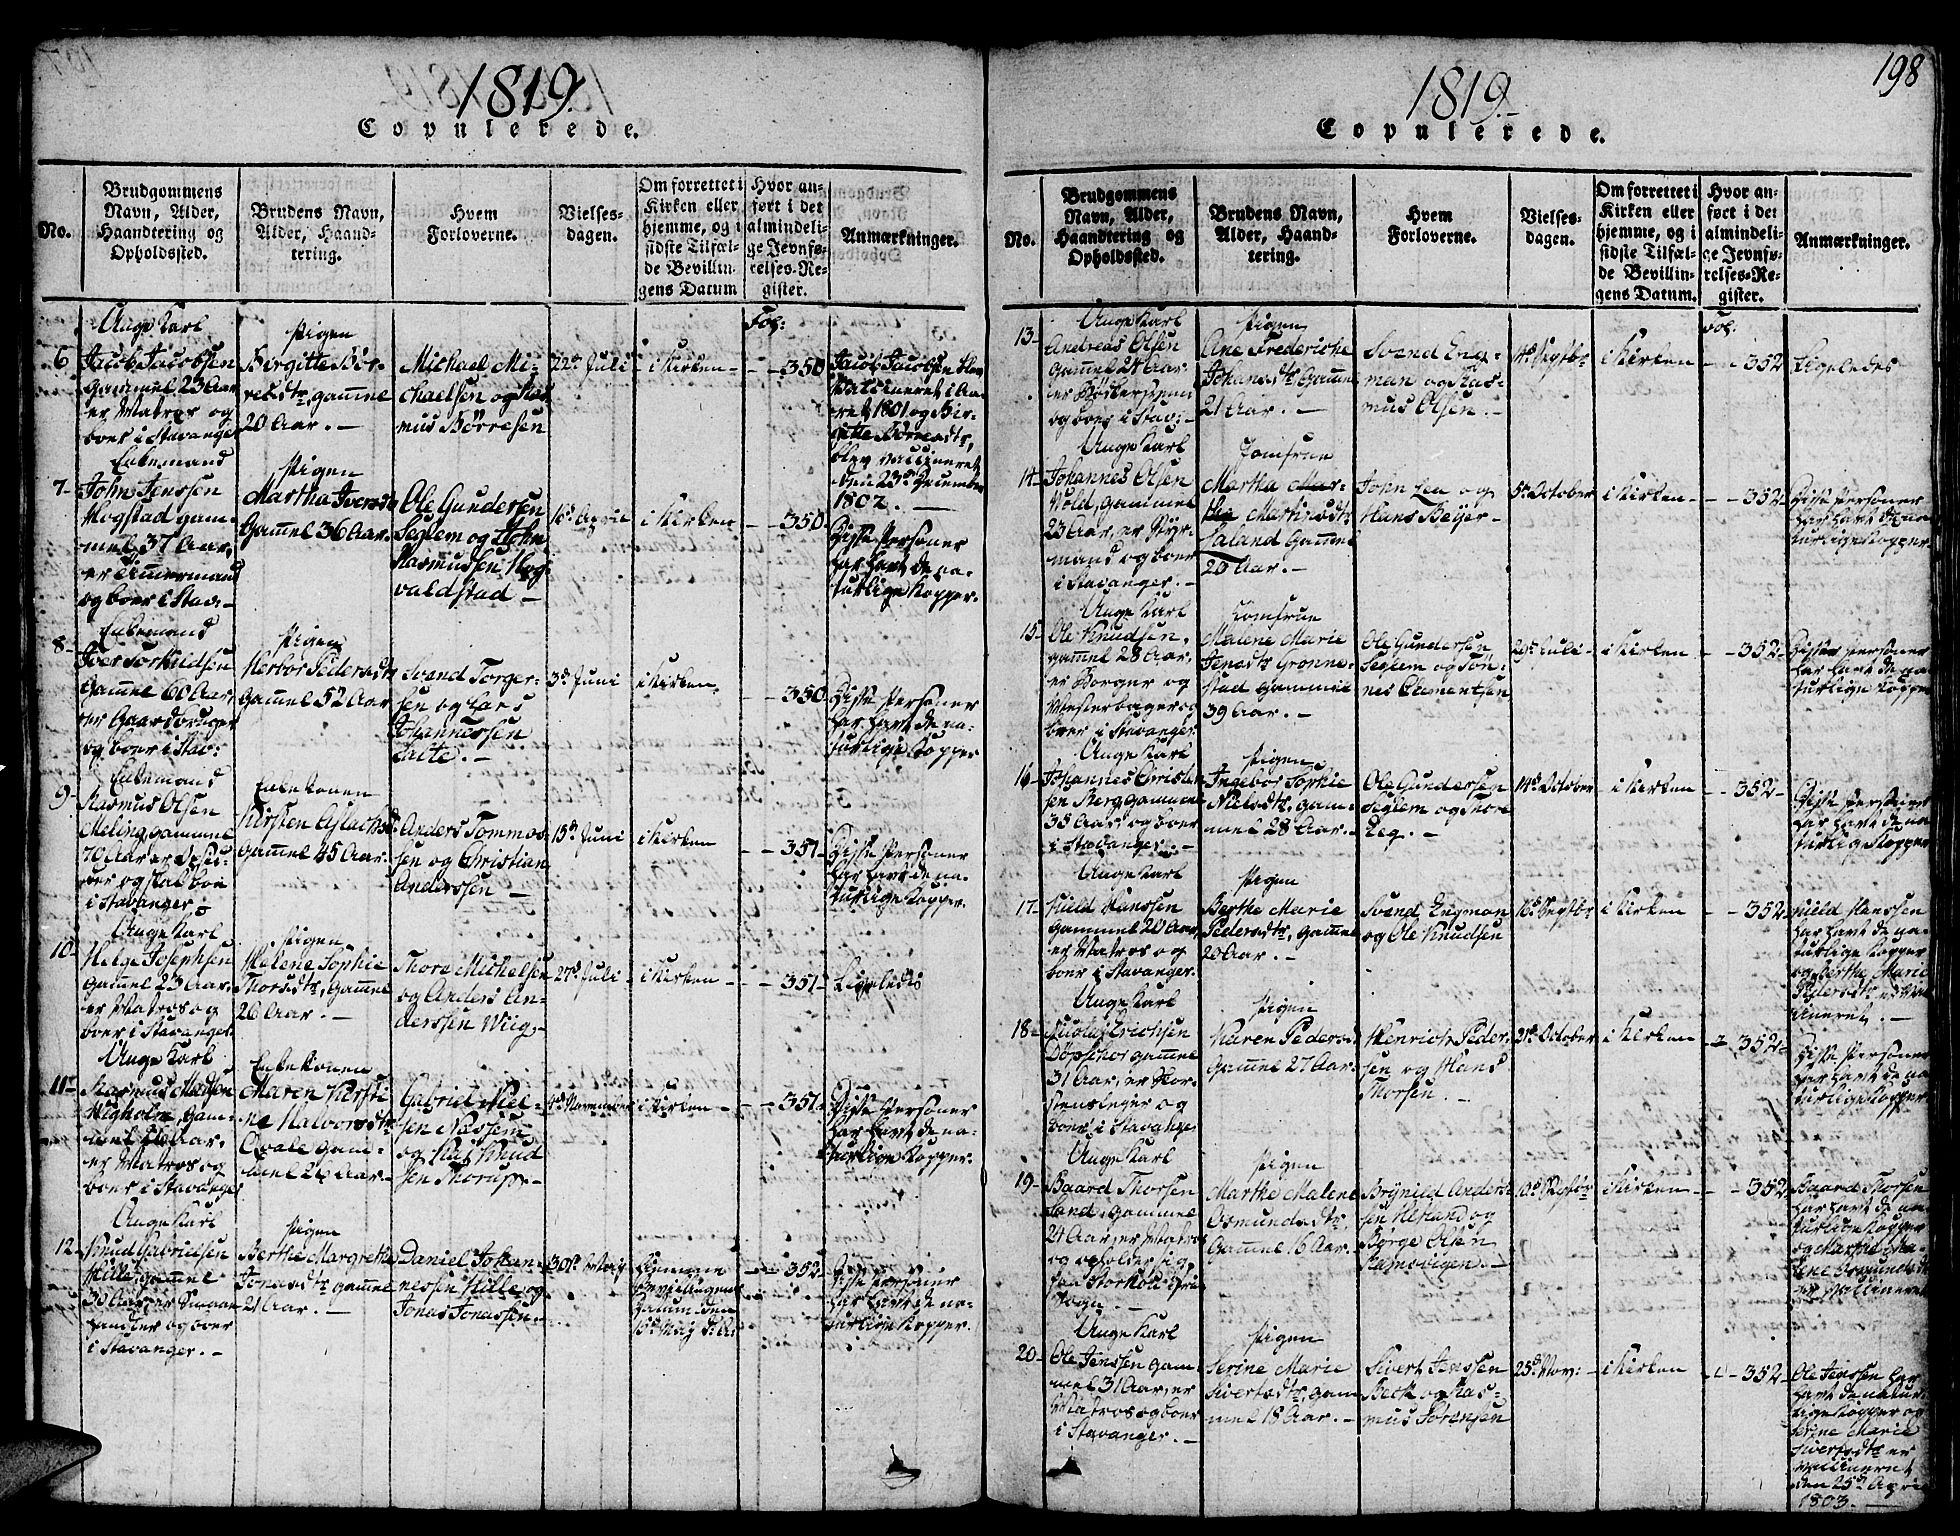 1819.
Copulerede.
No.
Brudgommens
Navn, Alder,
Haandtering og
Opholdssted.
Brudens Navn,
Alder, Haand-
tering.
Hvem
Forloverne.
Vielses-
dagen.
Om forrettet i
Kirken eller
hjemme, og i
sidste Tilfæl-
de Bevillin-
gens Datum
Hvor an-
ført i det
almindeli-
ge Jevnfø-
relses-Re-
gister.
Anmærkninger.
Fol:
6
Unge Karl
Jacob Jacobsen
gammel 23 Aar
er Matros og
boer i Stavanger
Pigen
Birgitte Bør-
resdtr, gamel
20 Aar. -
Michael Mi-
chaelsen og Ras
mus Børresen
22de Juli
i Kirken
350
Jacob Jacobsen blev
vaccineret i Aa-
ret 1801 og Bir-
gitte Børresdtr,
blev vaccineret
den 23de December
1802. -
7-
Enkemand
John Jenssen
Hogstad gam-
mel 37 Aar,
er Timermand
og boer i Stav: -
Pigen
Martha Iversdtr
Gamel 36 Aar.
Ole Gundersen
Seglem og John
Rasmussen Hog-
valdstad -
16de April
i Kirken
350
Disse Personer
har havt de na-
turlige Kopper.
8-
Enkemand
Iver Torkildsen
Gamel 60 Aar,
er Gaardbruger
og boer i Stav:
Pigen
Herbor Pedersdtr
Gammel 52 Aar
Svend Torger-
sen og Lars
Johannessen
3de Juni
i Kirken
350
Disse Personer
har havt de na-
turlige Kopper
9-
Enkemand
Rasmus Olsen
Meling, gammel
70 Aar er
og skal boe
i Stavanger -
Enkekonen
Kirsten Aslachsd
Gammel 45 Aar.
Anders Tommes-
sen og Christian
Anderssen -
15de Juni
i Kirken
351-
Disse Personer
har havt de na-
turlige Kopper.
10-
Unge Karl
Helge Josephsen
Gamel 23 Aar,
er Matros og
boer i Stavanger
Pigen
Helene Sophie
Thorsdtr, Gamel
26 Aar. -
Thore Michelsen
og Anders An-
derssen Wiig,-
27de Juli
i Kirken
351-
Ligeledes
11-
Unge Karl
Rasmus Madsen
Vigholm, gam-
mel 26 Aar,
er Matros og
boer i Stavanger
Enkekonen
Maren Kirsti-
ne Halvorsdtr
Qvale gam-
mel 26 Aar. -
Gabriel Niel-
sen Næssem
og Knud
sen Thorup. -
4de November
i Kirken
351.
Disse Personer
har havt de na-
turlige Kopper.
12.
Unge Karl
Knud Gabrielsen
Hille, gammel
30 Aar, er
handler og boer
i Stavanger. -
Pigen
Berthe Margrethe
Jonasdtr gammel
21 Aar. -
Daniel Johan-
nessen Hille og
Jonas Jonassen. -
30te May
Hjemme
Bevillingens
Datum den
15de May
352-
Disse Personer
har havt de na-
turlige Kopper.
198
1819.-
Copulerede.
No.
Brudgommens
Navn, Alder,
Haandtering og
Opholdssted.
Brudens Navn,
Alder, Haand-
tering.
Hvem
Forloverne.
Vielses-
dagen.
Om forrettet i
Kirken eller
hjemme, og i
sidste Tilfæl-
de Bevillin-
gens Datum.
Hvor an-
ført i det
almindeli-
ge Jevnfø-
relses-Re-
gister.
Anmærkninger.
Fol:
13-
Unge Karl
Andreas Olsen
Gammel 24 Aar
er Bødkersvend
og boer i Stav: -
Pigen
Ane Frederiche
Johansdtr Gamel
21 Aar. -
Svend Eng-
man og Ras-
mus Olsen. -
i Kirken
352
Ligeledes
14-
Unge Karl
Johannes Olsen
Vold, gammel
23 Aar, er Styr-
mand og boer
i Stavanger. -
Jomfrue
Martha Mar-
tha Martinsdtr
Saland Gamel
20 Aar. -
John Lea og
Hans Beyer -
5te October
i Kirken
352-
Disse Personer
har havt de na-
turlige Kopper.
15-
Unge Karl
Ole Knudsen,
gamel 28 Aar,
er Borger og
Mesterbager og
boer i Stavanger
Jomfrue
Malene Marie
Jensdtr Grønne-
stad gammel
39 Aar. -
Ole Gundersen
Seglem og Tøn-
nes Clementsen
29de Juli
i Kirken
352-
Disse Personer
har havt de na-
turlige Kopper
16-
Unge Karl
Johannes Christen
sen Berg gammel
35 Aar og boer
i Stavanger. -
Pigen
Ingebor Sophie
Nielsdtr, gam-
mel 28 Aar. -
Ole Gundersen
Seglem og Thore
Eeg. -
14de October
i Kirken
352-
Disse Personer
har havt de na-
turlig Kopper
17-
Unge Karl
Nield Hanssen
gammel 20 Aar,
er Matros og
boer i Stavanger.
Pigen
Berthe Marie
Pedersdtr, gamel
20 Aar. -
Svend Engman
og Ole Knudsen
i Kirken
352-
Nield Hanssen
har havt de na-
turlige Kopper
og Berthe Marie
Pedersdtr er vac-
cineret. -
18-
Unge Karl
Nicolai Erichsen
Døpschor gammel
31 Aar, er
og
boer i Stavanger
Pigen
Karen Peders-
gammel 27 Aar.
Henrich Peder-
sen og Hans
Thorsen. -
21de October
i Kirken
352-
Disse Personer
har havt de na-
turlige Kopper
19-
Unge Karl
Baard Thorsen
Sand, gammel
24 Aar, er Matros
og opholder sig
Pigen
Marthe Malene
Osmundsdtr,
Gammel 16 Aar.
Brynild Anders-
sen Hetland og
Børge Olsen
Ramsvigen. -
i Kirken
352
Baard Thorsen
har havt de na-
turlige Kopper
og Marthe Ma-
lene Osmundsdtr
er vaccineret
20-
Unge Karl
Ole Jenssen gam-
mel 31 Aar, er
Matros og boer
i Stavanger. -
Pigen
Serine Marie
Sivertsdtr, gam
mel 18 Aar. -
Sivert Jenssen
Beck og Ras-
mus Sørensen
25de Nov:
i Kirken
352-
Ole Jenssen har
havt de natur-
lige Kopper og
Serine Marie
Sivertsdtr er
vaccineret
den 25de April
1803. -